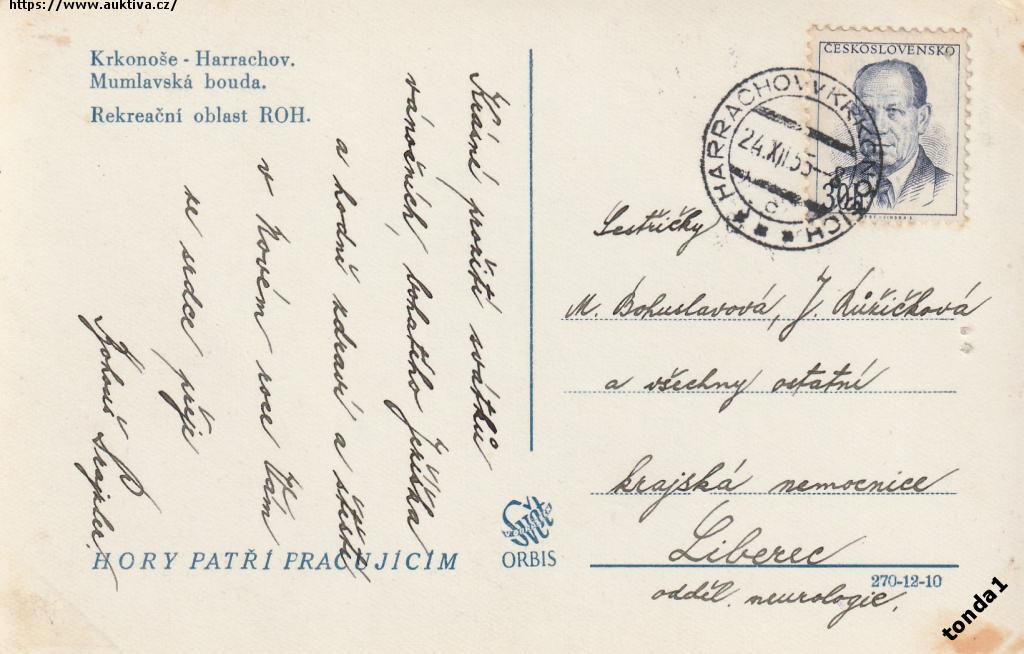 https://www.auktiva.cz/
Krkonoše - Harrachov.
Mumlavská bouda.
Rekreační oblast ROH.
Krásné prožití svátků
vánočních, bohatého Ježíška
a hodně zdraví a štěstí
v Novém roce Vám
ze srdce přeje
HORY PATŘÍ PRACUJÍCÍM
Svět
ORBIS
ČESKOSLOVENSKO
30h
HARRACHOV V KRKONOŠÍCH
24.XII.55-8
Sestřičky
M. Bohuslavová, J. Růžičková
a všechny ostatní
krajská nemocnice
Liberec
odděl. neurologie.
270-12-10
tonda1